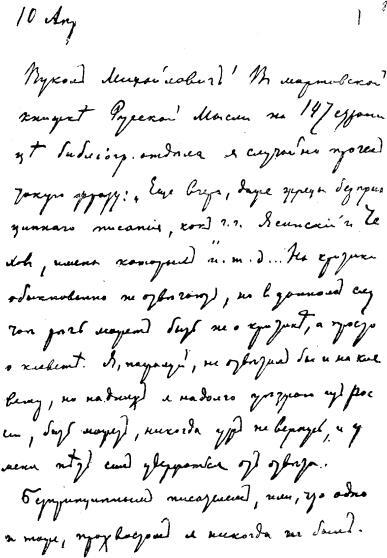 10 Апр
Вуколъ Михайловичъ! Въ мартовской
книжкѣ Русской Мысли на 147 страни
цѣ библіогр. отдѣла я случайно прочелъ
такую фразу: „Еще вчера, даже жрецы безприн
ципнаго писанія, какъ г.г. Ясинскій и Че
ховъ, имена которыхъ" и. т. д... На критики
обыкновенно не отвѣчаютъ, но въ данномъ слу
чаѣ рѣчь можетъ быть не о критикѣ, а просто
о клеветѣ. Я, пожалуй, не отвѣтилъ бы и на кле
вету, но на дняхъ я надолго уѣзжаю изъ Рос
сіи, быть можетъ, никогда ужъ не вернусь, и у
меня нѣтъ силъ удержаться отъ отвѣта.
Безпринципнымъ писателемъ, или, что одно
и тоже, прохвостомъ я никогда не былъ.